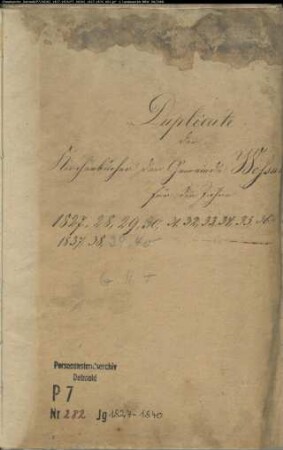 Duplicate
der
Kirchenbücher der Gemeinde
für die Jahre
1827. 28, 29. 30, 31. 32. 33. 34. 35. 36
1837. 38, 39. 40
Personenstandsarchiv
Detmold
P 7
Nr 282 Jg 1827-1840